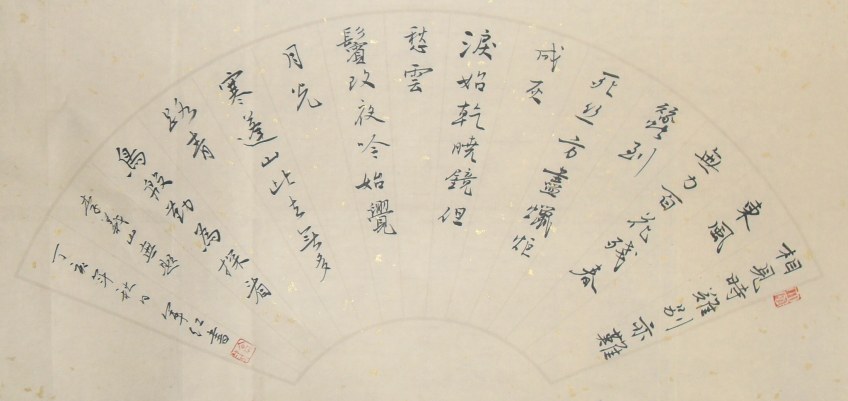 相見時難別亦難
東風
無力百花残春
蠶到
死絲方盡蠟炬
成灰
淚始乾曉鏡但
愁雲
鬢改夜吟始覺
月光
寒蓬山此去無多
路青
鳥殷勤為探看
李義山無題
丁亥年秋